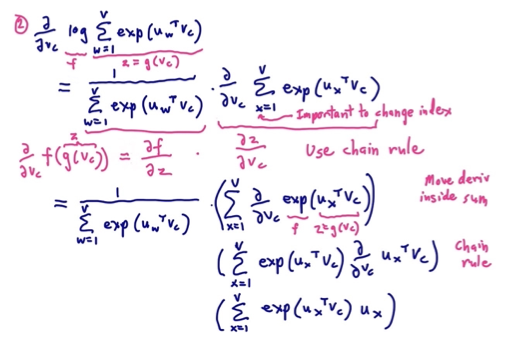 ② ∂/∂v_c log Σ_{w=1}^{V} exp(u_w^T v_c)
f z = g(v_c)
= 1 / Σ_{w=1}^{V} exp(u_w^T v_c) · ∂/∂v_c Σ_{x=1}^{V} exp(u_x^T v_c)
Important to change index
z
∂/∂v_c f(g(v_c)) = ∂f/∂z · ∂z/∂v_c Use chain rule
= 1 / Σ_{w=1}^{V} exp(u_w^T v_c) · (Σ_{x=1}^{V} ∂/∂v_c exp(u_x^T v_c)) Move deriv inside sum
f z=g(v_c)
(Σ_{x=1}^{V} exp(u_x^T v_c) ∂/∂v_c u_x^T v_c) Chain rule
(Σ_{x=1}^{V} exp(u_x^T v_c) u_x)